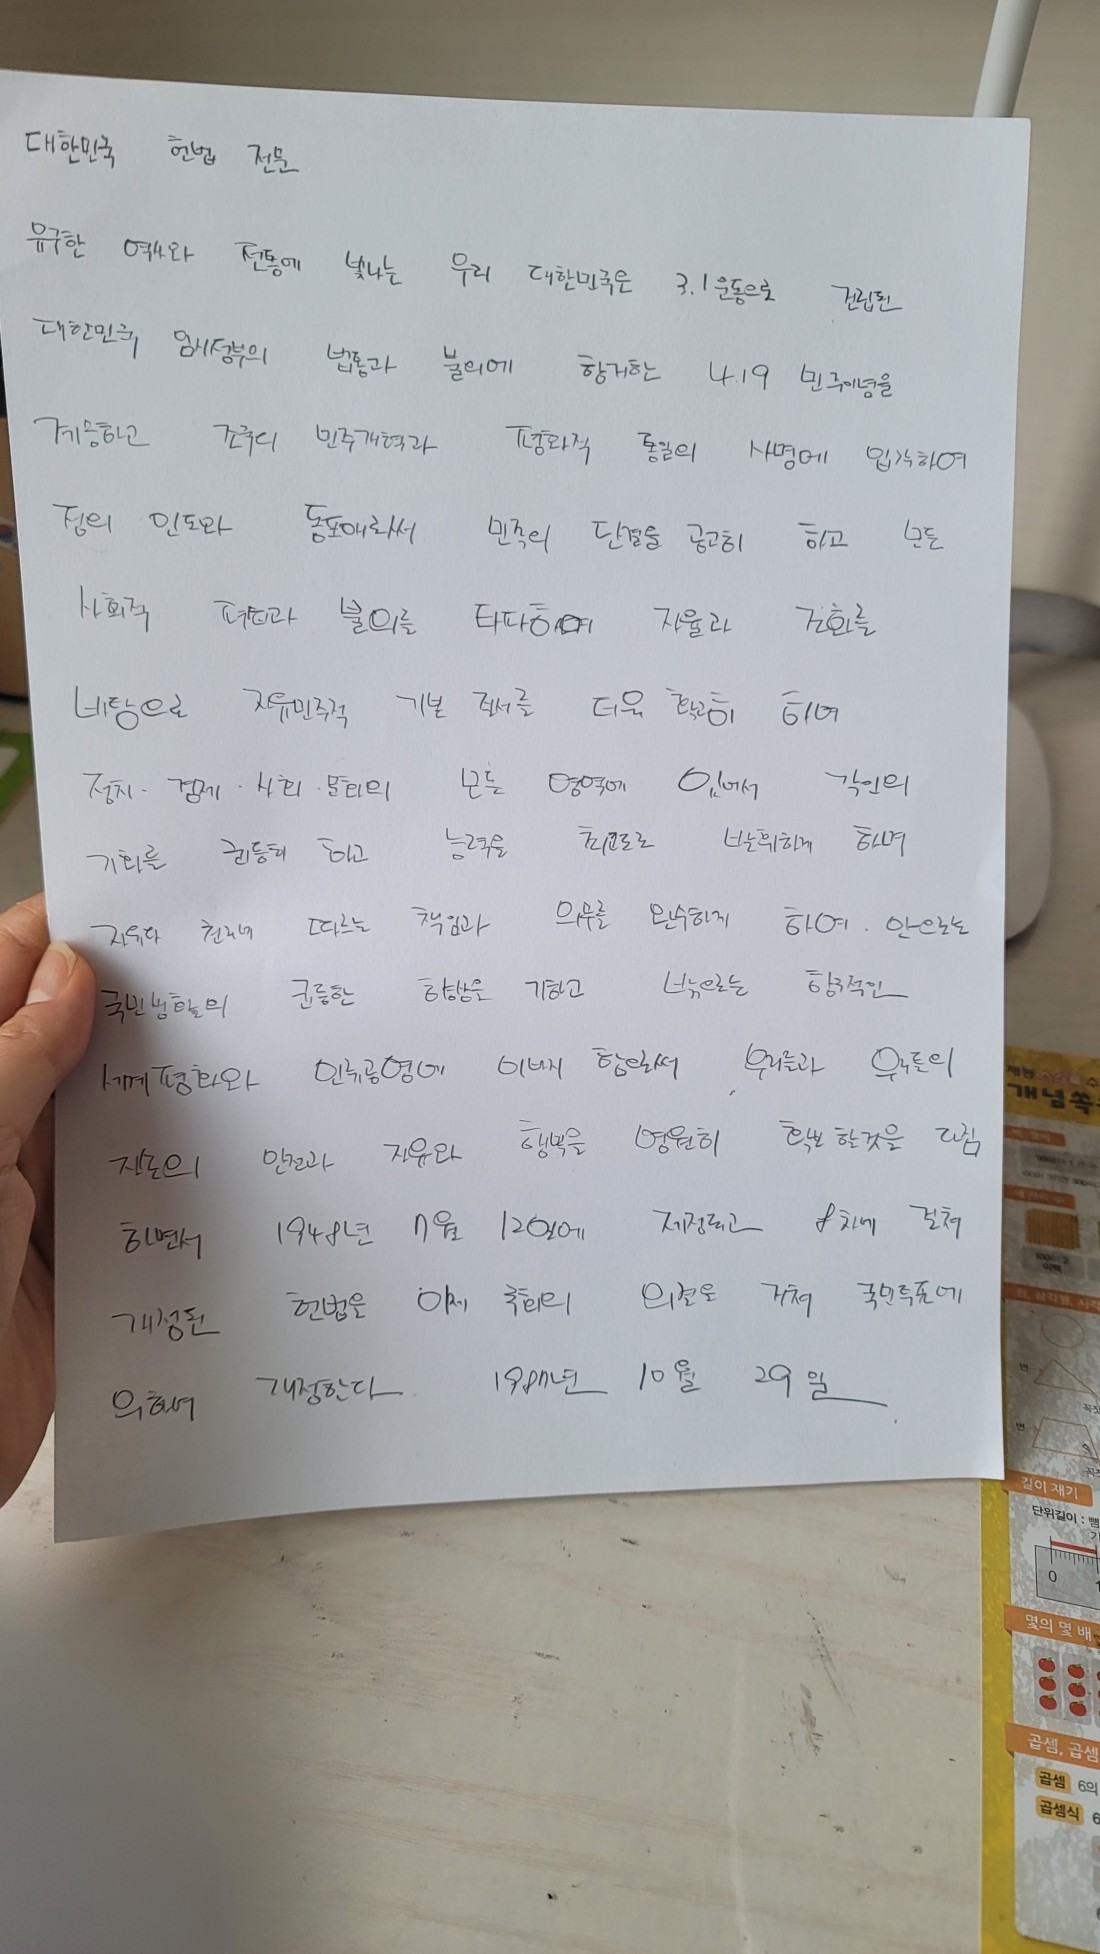 대한민국 헌법 전문
유구한 역사와 전통에 빛나는 우리 대한민국은 3.1운동으로 건립된
대한민국 임시정부의 법통과 불의에 항거한 4.19 민주이념을
계승하고 조국의 민주개혁과 평화적 통일의 사명에 입각하여
정의 인도와 동포애로써 민족의 단결을 공고히 하고 모든
사회적 폐단과 불의를 타파하며 자율과 조화를
바탕으로 자유민주적 기본 질서를 더욱 확고히 하여
정치·경제·사회·문화의 모든 영역에 있어서 각인의
기회를 균등히 하고 능력을 최고도로 발휘하게 하며
자유와 권리에 따르는 책임과 의무를 완수하게 하여. 안으로는
국민생활의 균등한 향상을 기하고 밖으로는 항구적인
세계평화와 인류공영에 이바지 함으로써 우리들과 우리들의
자손의 안전과 자유와 행복을 영원히 확보 할것을 다짐
하면서 1948년 7월 12일에 제정되고 8차에 걸쳐
개정된 헌법을 이제 국회의 의결을 거쳐 국민투표에
의하여 개정한다. 1987년 10월 29일
개념쏙
길이 재기
단위길이 : 뼘
0
몇의 몇 배
곱셈, 곱셈
곱셈 6의
곱셈식 6